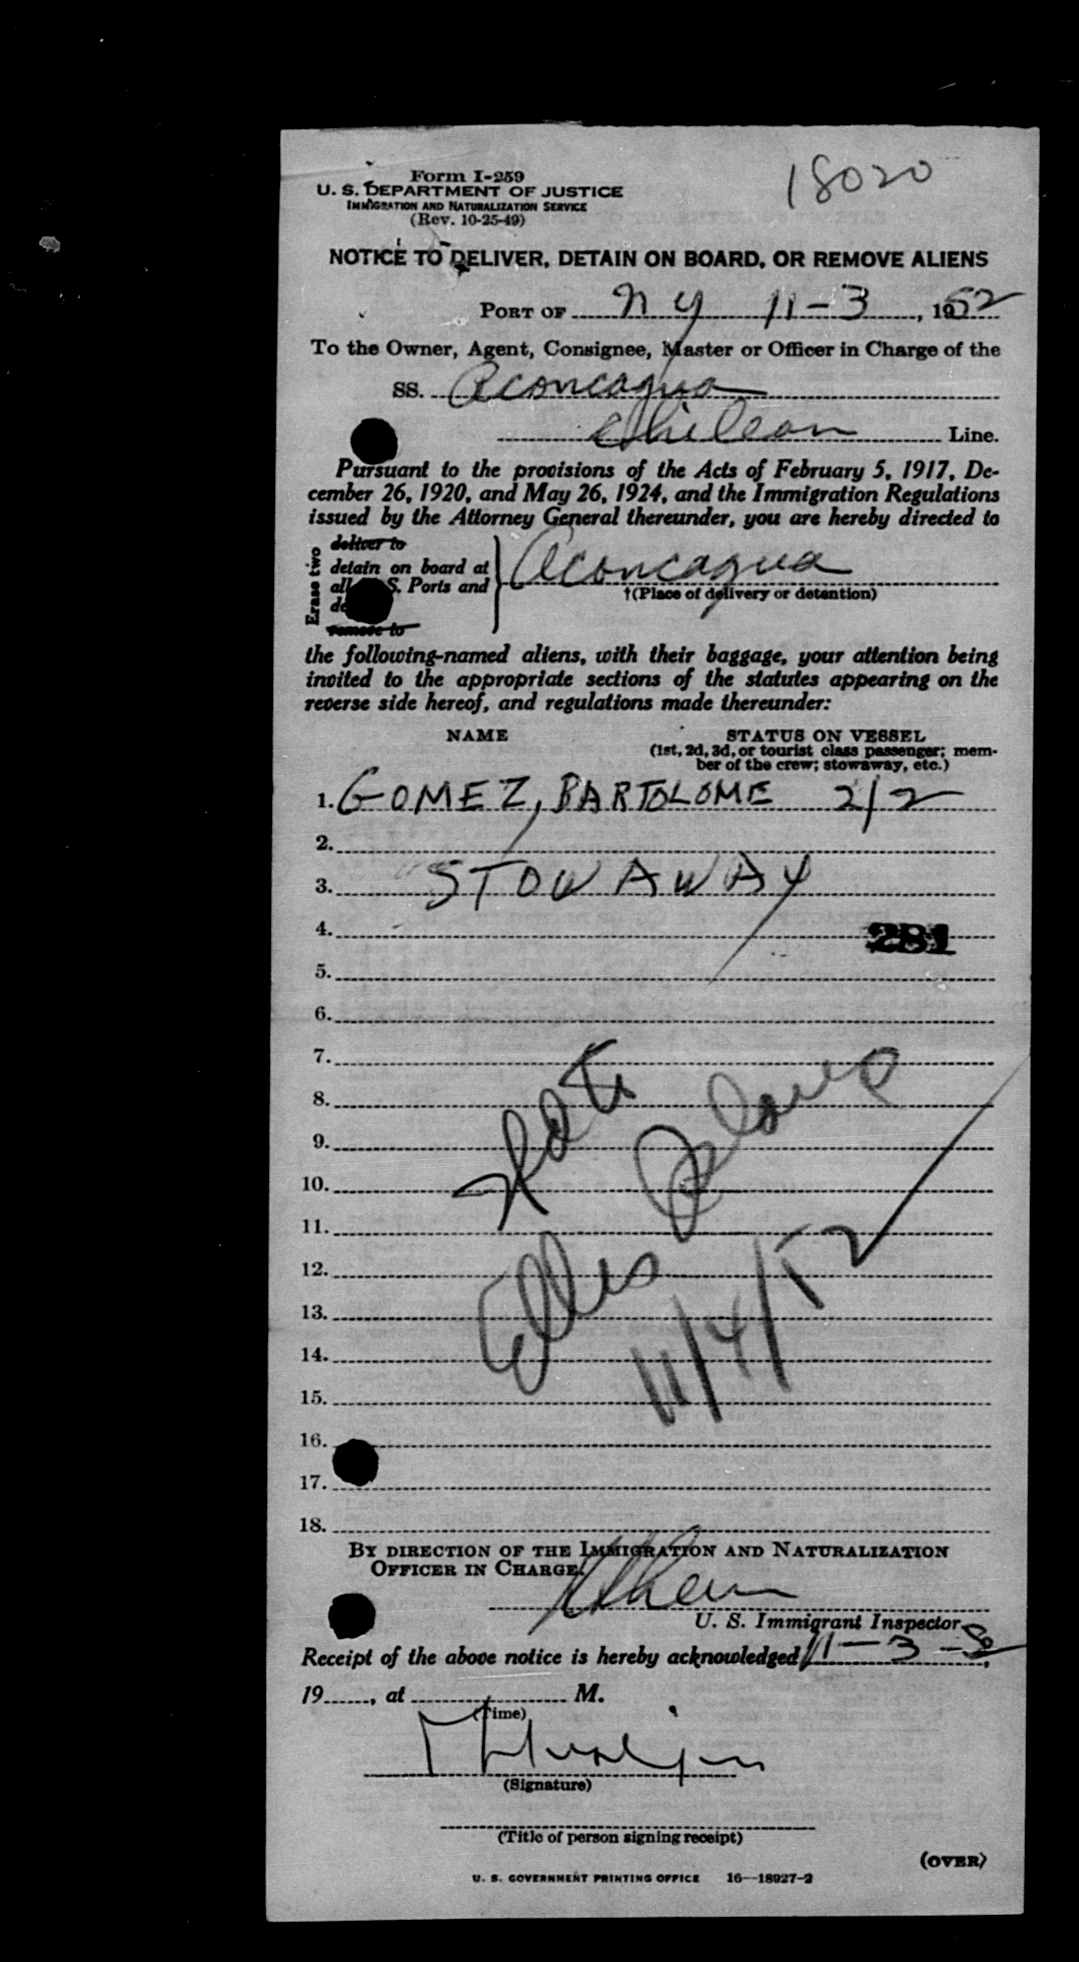 18020
Form I-259
U. S. DEPARTMENT OF JUSTICE
IMMIGRATION AND NATURALIZATION SERVICE
(Rev. 10-25-49)
NOTICE TO DELIVER, DETAIN ON BOARD, OR REMOVE ALIENS
PORT OF NY 11-3, 1952
To the Owner, Agent, Consignee, Master or Officer in Charge of the
SS. Aconcagua
Chilean Line.
Pursuant to the provisions of the Acts of February 5, 1917, De-
cember 26, 1920, and May 26, 1924, and the Immigration Regulations
issued by the Attorney General thereunder, you are hereby directed to
Erase two
deliver to
detain on board at
all S. Ports and
remove to
Aconcagua
†(Place of delivery or detention)
the following-named aliens, with their baggage, your attention being
invited to the appropriate sections of the statutes appearing on the
reverse side hereof, and regulations made thereunder:
NAME STATUS ON VESSEL
(1st, 2d, 3d, or tourist class passenger; mem-
ber of the crew; stowaway, etc.)
1. GOMEZ, BARTOLOME 2/2
2.
3. STOWAWAY
4. 281
5.
6.
7.
8.
9.
10.
11.
12.
13.
14.
15.
16.
17.
18.
Ellis Island
11/4/52
BY DIRECTION OF THE IMMIGRATION AND NATURALIZATION
OFFICER IN CHARGE.
U. S. Immigrant Inspector.
Receipt of the above notice is hereby acknowledged 11-3-52,
19......, at ............ M.
(Time)
(Signature)
(Title of person signing receipt)
(OVER)
U. S. GOVERNMENT PRINTING OFFICE 16—18927-2